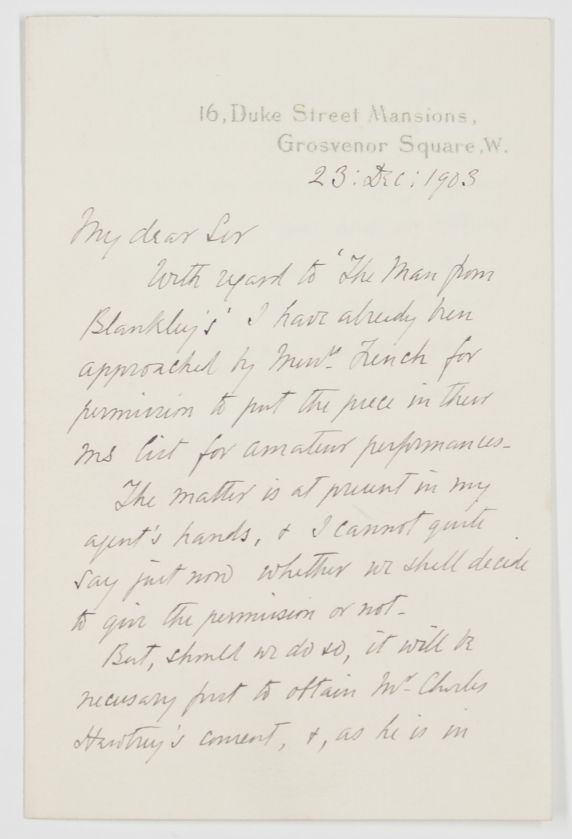 16, Duke Street Mansions,
Grosvenor Square, W.
23: Dec: 1903
My dear Sir
With regard to 'The Man from
Blankley's' I have already been
approached by Mess<sup>rs</sup> French for
permission to put the piece in their
MS list for amateur performances.
The matter is at present in my
agent's hands, & I cannot quite
say just now whether we shall decide
to give the permission or not.
But, should we do so, it will be
necessary first to obtain Mr. Charles
Hawtrey's consent, &, as he is in